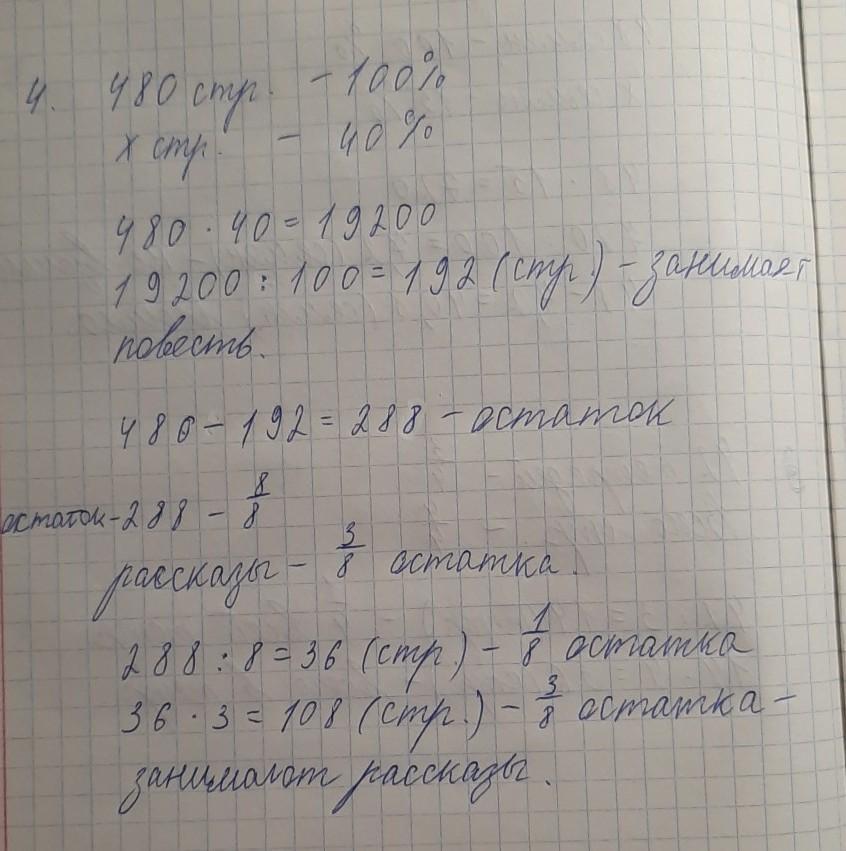 4. 480 стр. - 100%
x стр. - 40%
480 · 40 = 19200
19200 : 100 = 192 (стр.) - занимает
повесть.
480 - 192 = 288 - остаток
остаток - 288 - 8/8
рассказы - 3/8 остатка.
288 : 8 = 36 (стр.) - 1/8 остатка
36 · 3 = 108 (стр.) - 3/8 остатка -
занимают рассказы.